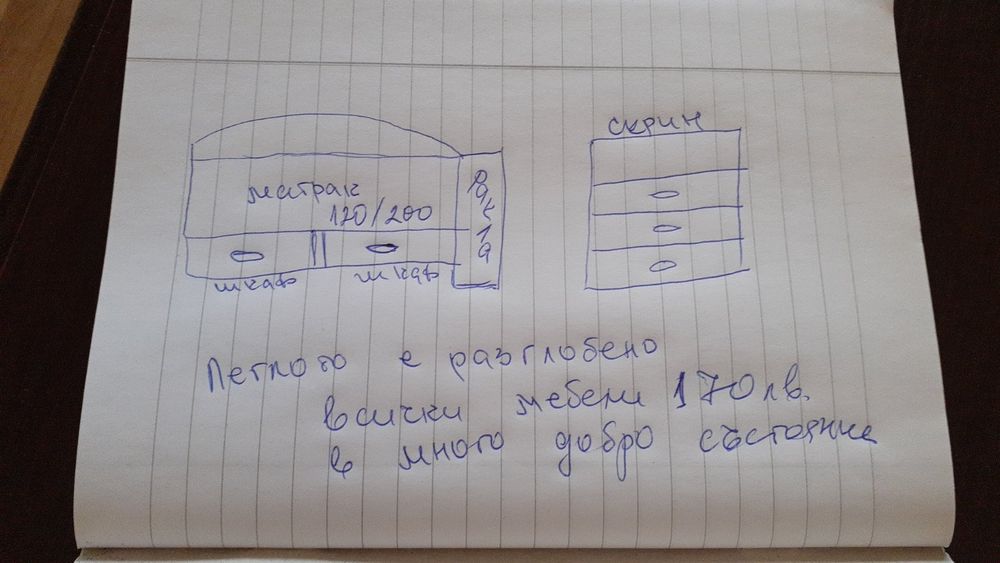 скрин
матрак
120/200
ракла
шкаф
шкаф
Леглото е разглобено
всички мебели 170 лв.
в много добро състояние